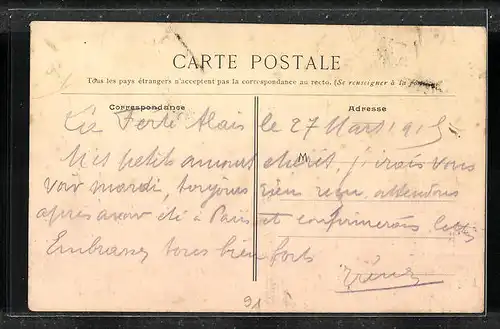 CARTE POSTALE
Tous les pays étrangers n'acceptent pas la correspondance au recto. (Se renseigner à la poste)
Correspondance
Adresse
La Ferté Alais le 27 Mars 1915
M
Mes petits amours chéris j'irais vous
voir mardi, toujours rien reçu, attendrons
après avoir été à Paris et confirmerons
Embrassez tous bien forts
91